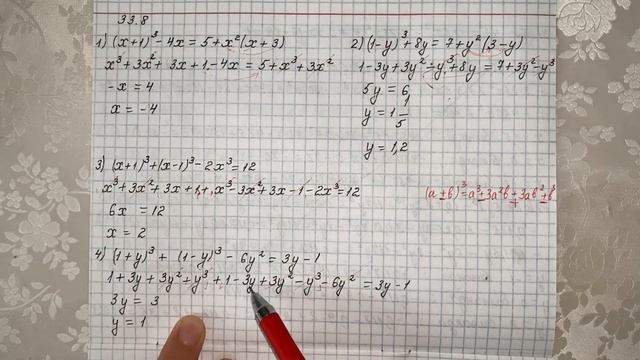 33.8
1) (x+1)³ - 4x = 5 + x²(x+3)
x³ + 3x² + 3x + 1 - 4x = 5 + x³ + 3x²
-x = 4
x = -4
2) (1-y)³ + 8y = 7 + y²(3-y)
1 - 3y + 3y² - y³ + 8y = 7 + 3y² - y³
5y = 6
y = 1 1/5
y = 1,2
3) (x+1)³ + (x-1)³ - 2x³ = 12
x³ + 3x² + 3x + 1 + x³ - 3x² + 3x - 1 - 2x³ = 12
6x = 12
x = 2
(a ± b)³ = a³ ± 3a²b + 3ab² ± b³
4) (1+y)³ + (1-y)³ - 6y² = 3y - 1
1 + 3y + 3y² + y³ + 1 - 3y + 3y² - y³ - 6y² = 3y - 1
3y = 3
y = 1